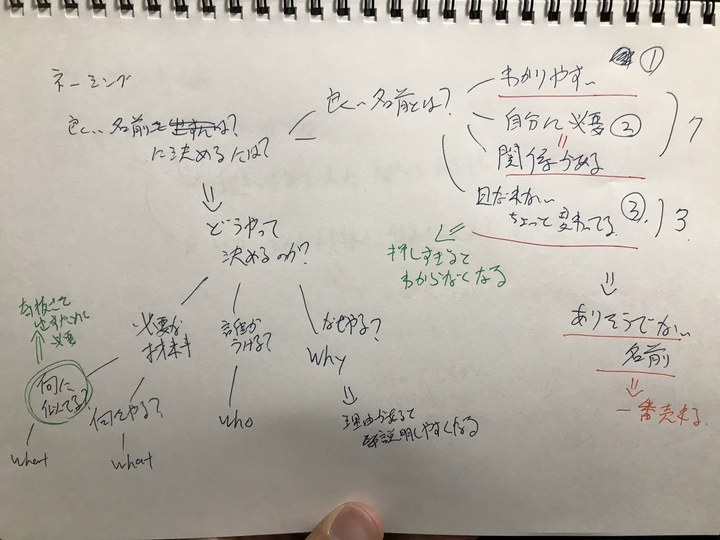 ネーミング
良い名前とは?
に決めるには?
良い名前とは?
わかりやすい
①
自分に必要 ②
=
関係がある
7
見なれない
ちょっと変わってる ③
3
押しすぎると
わからなくなる
ありそうでない
名前
一番売れる
どうやって
決めるのか?
必要な
材料
誰が
うける?
なぜやる?
Why
理由があると
説明しやすくなる
何に
似てる?
何をやる?
who
what
what
必要